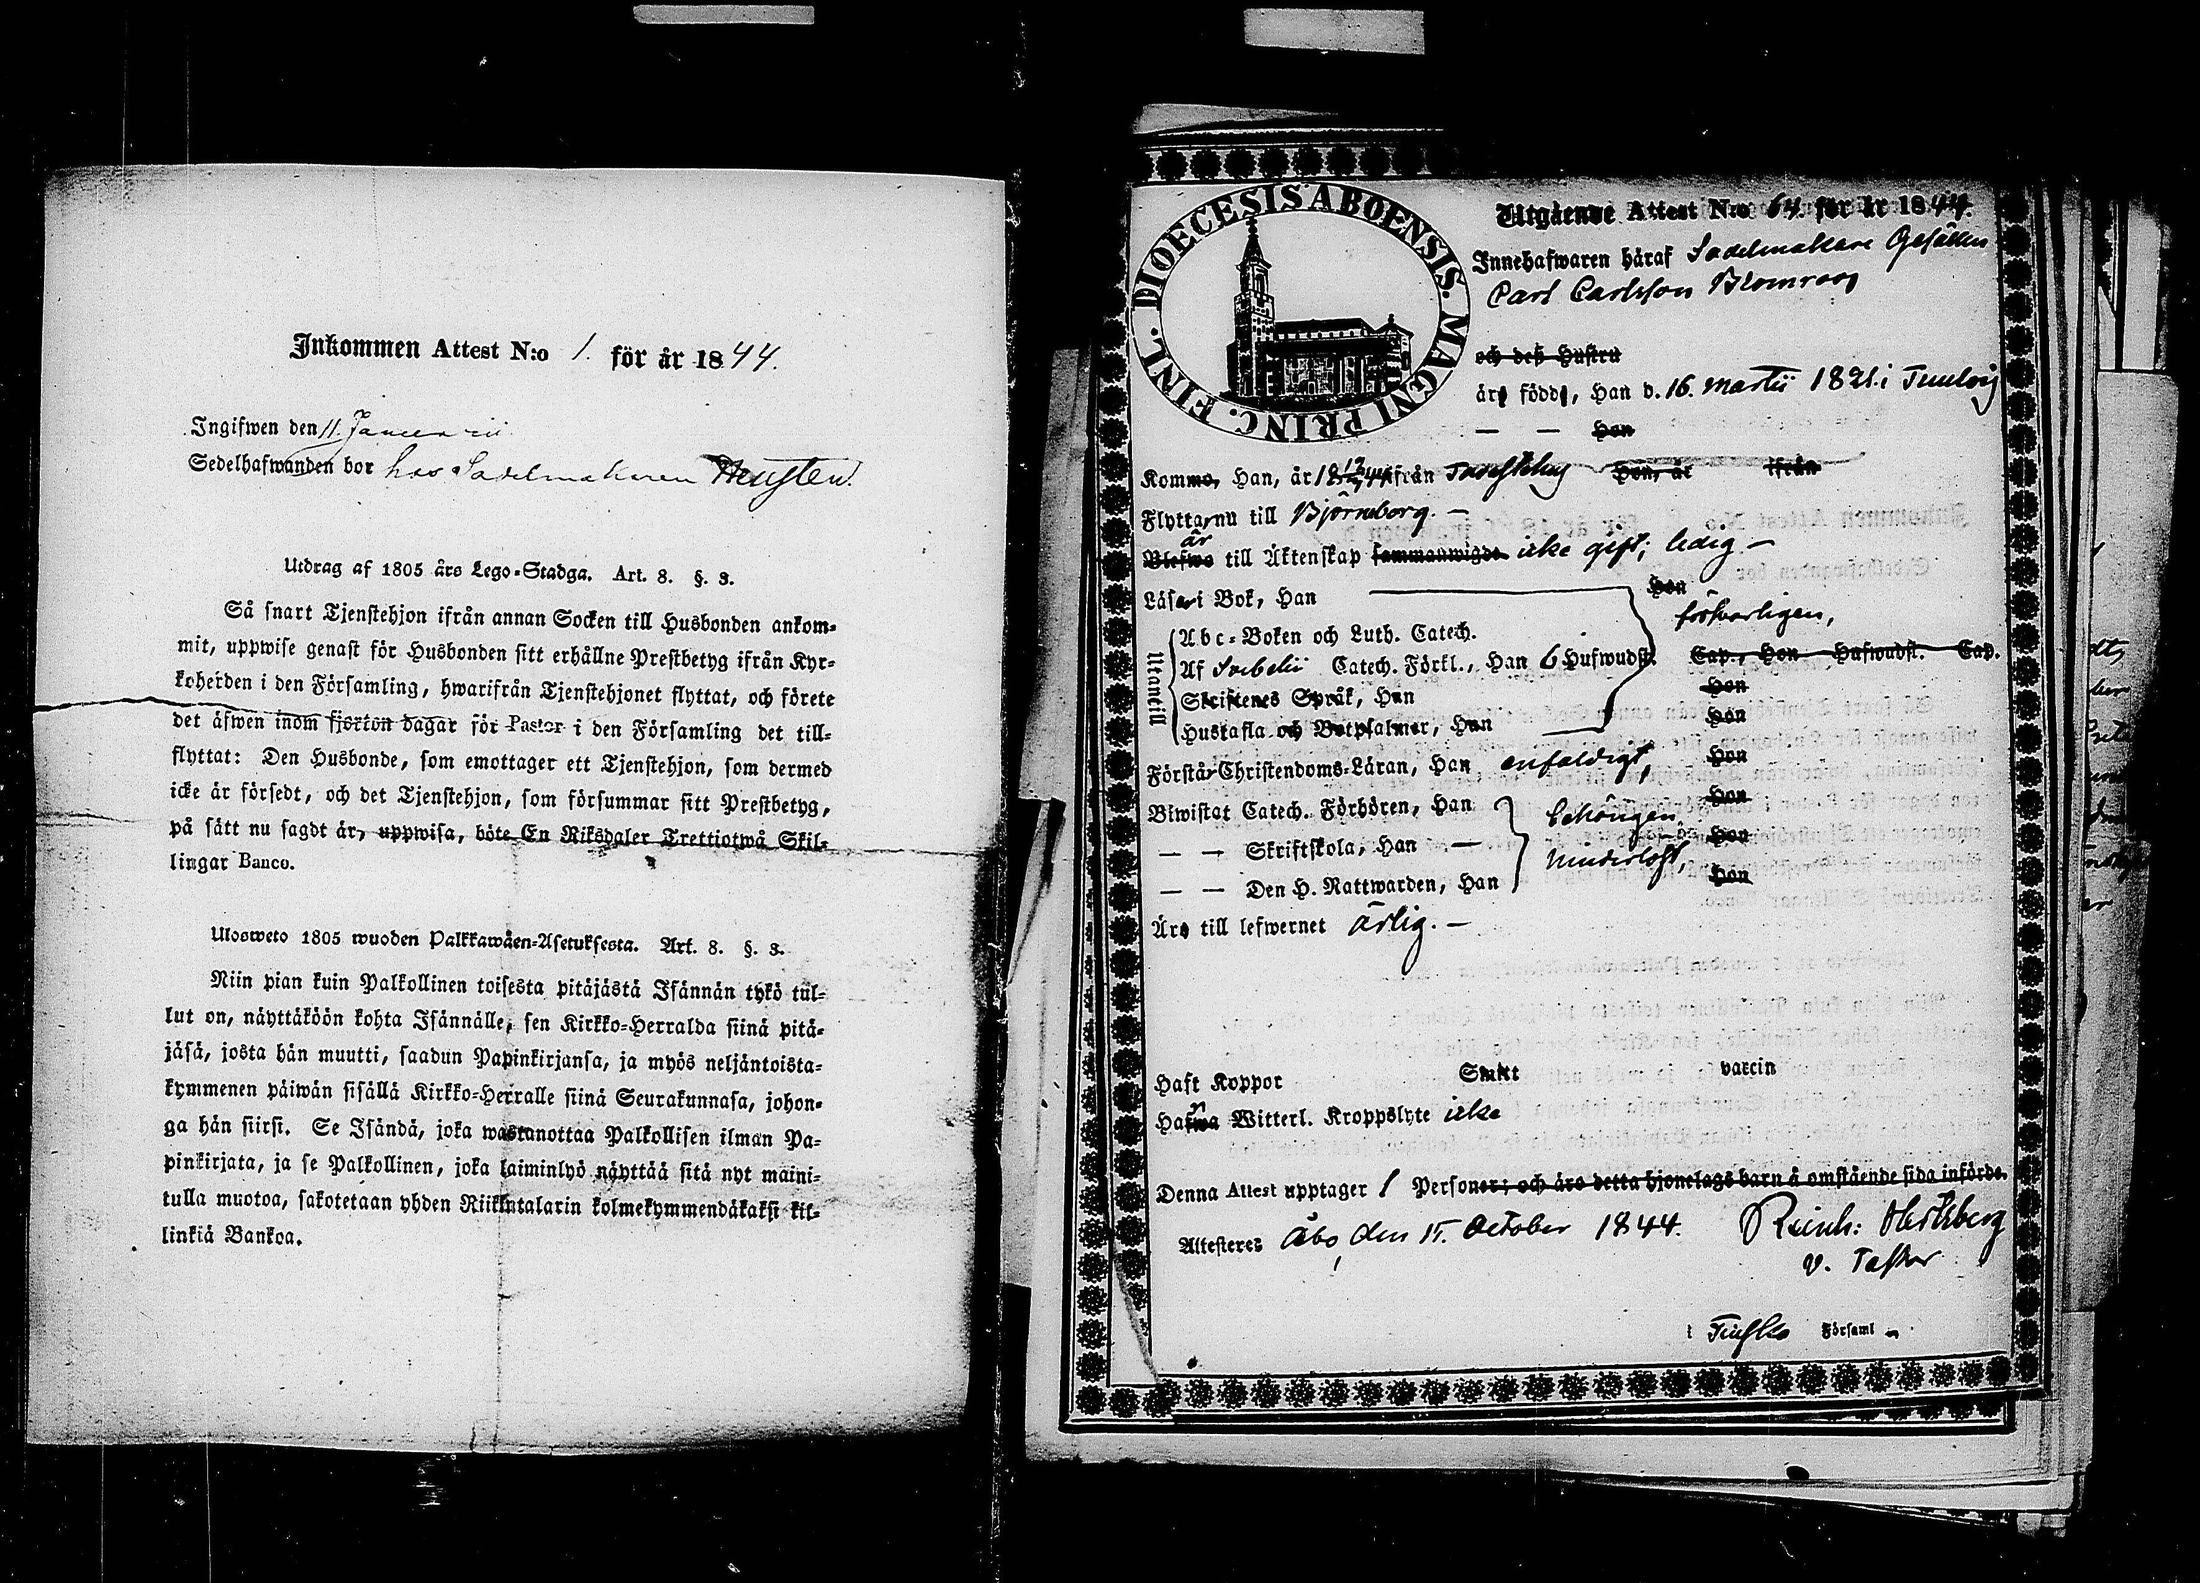 Inkommen Attest N:o 1. för år 1844.
Ingifwen den 11. Januarii
Sedelhafwanden bor hos Sadelmakaren
Utdrag af 1805 års Lego-Stadga. Art. 8. §. 3.
Så snart Tjenstehjon ifrån annan Socken till Husbonden ankom-
mit, uppwise genast för Husbonden sitt erhållne Prestbetyg ifrån Kyr-
koherden i den Församling, hwarifrån Tjenstehjonet flyttat, och förete
det äfwen inom fjorton dagar för Pastor i den Församling det till-
flyttat: Den Husbonde, som emottager ett Tjenstehjon, som dermed
icke är försedt, och det Tjenstehjon, som försummar sitt Prestbetyg,
på sätt nu sagdt är, uppwisa, böte En Riksdaler Trettiotwå Skil-
lingar Banco.
Ulosweto 1805 wuoden Palkkawäen-Asetuksesta. Art. 8. §. 3.
Niin pian kuin Palkollinen toisesta pitäjästä Isännän tykö tul-
lut on, näyttäköön kohta Isännälle, sen Kirkko-Herralda siinä pitä-
jäsä, josta hän muutti, saadun Papinkirjansa, ja myös neljäntoista-
kymmenen päiwän sisällä Kirkko-Herralle siinä Seurakunnasa, johon-
ga hän siirsi. Se Isändä, joka wastanottaa Palkollisen ilman Pa-
pinkirjata, ja se Palkollinen, joka laiminlyö näyttää sitä nyt maini-
tulla muotoa, sakotetaan yhden Riikintalarin kolmekymmendäkaksi kil-
linkiä Bankoa.
DIOECESIS ABOENSIS. MAGNI PRINC. FINL.
Utgående Attest N:o 64. för år 1844.
Innehafwaren häraf Sadelmakare Gesällen
Carl Carlsson Blomroos
och deß Hustru
äro födde, Han d. 16. Martii 1821. i
— — Hon
Kommo, Han, år 18 44 ifrån Hon, år ifrån
Flytta nu till Björneborg. —
är
Blefwo till Äktenskap sammanwigde icke gift; ledig. —
Läsa i Bok, Han Hon
försvarligen,
Utantill
Abc-Boken och Luth. Catech.
Af Svebelii Catech. Förkl., Han 6 Hufwudst. Cap., Hon Hufwudst. Cap.
Skriftenes Språk, Han Hon
Hustafla och Botpsalmer, Han Hon
Förstår Christendoms-Läran, Han enfaldigt, Hon
Biwistat Catech. Förhören, Han behörigen, Hon
— — Skriftskola, Han — Hon
— — Den H. Nattwarden, Han Hon
Äro till lefwernet ärlig. —
Haft Koppor Smitt vaccin
Hafwa Witterl. Kroppslyte icke
Denna Attest upptager 1 Personer; och äro detta hjonelags barn å omstående sida införde.
Attesteres Åbo, den 15. October 1844. Reinh: Hertzberg
v. Pastor
i Församl